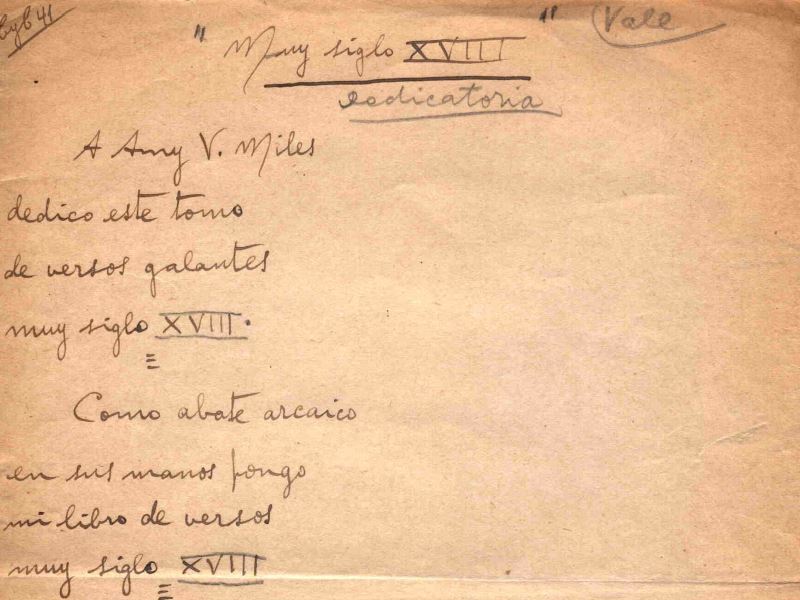 " Muy siglo XVIII "
Vale
dedicatoria
A Amy V. Miles
dedico este tomo
de versos galantes
muy siglo XVIII.
Como abate arcaico
en sus manos pongo
mi libro de versos
muy siglo XVIII